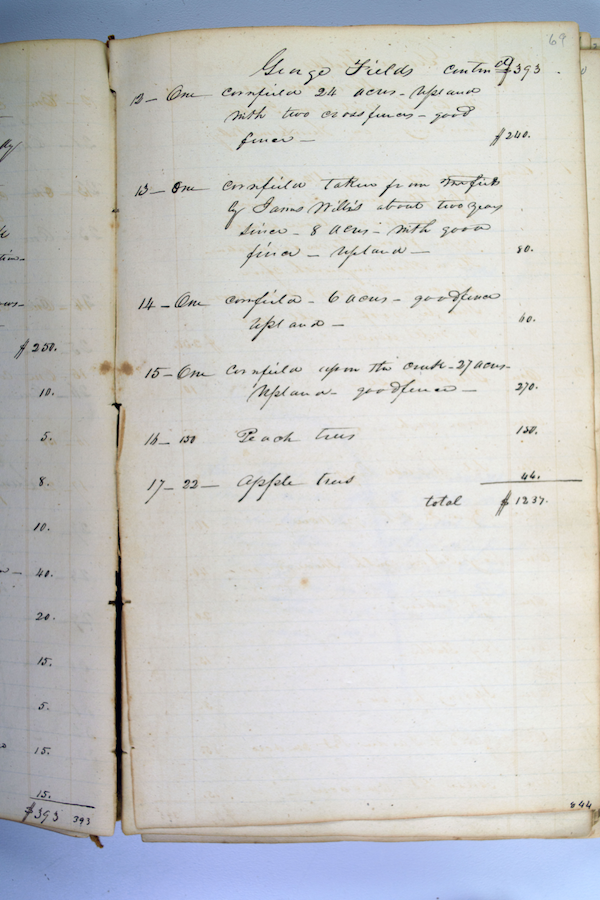 $250.
10.
5.
8.
10.
40.
20.
15.
5.
15.
15.
$393 393
69
George Fields contin'd $393.
12 - One cornfield 24 acres - upland
with two cross fences - good
fence - $240.
13 - One cornfield taken from
by James Willis about two years
since - 8 acres - with good
fence - upland - 80.
14 - One cornfield - 6 acres - good fence
upland - 60.
15 - One cornfield upon the creek - 27 acres -
upland - good fence - 270.
16 - 150 Peach trees 150.
17 - 22 - Apple trees 44.
total $1237.
844